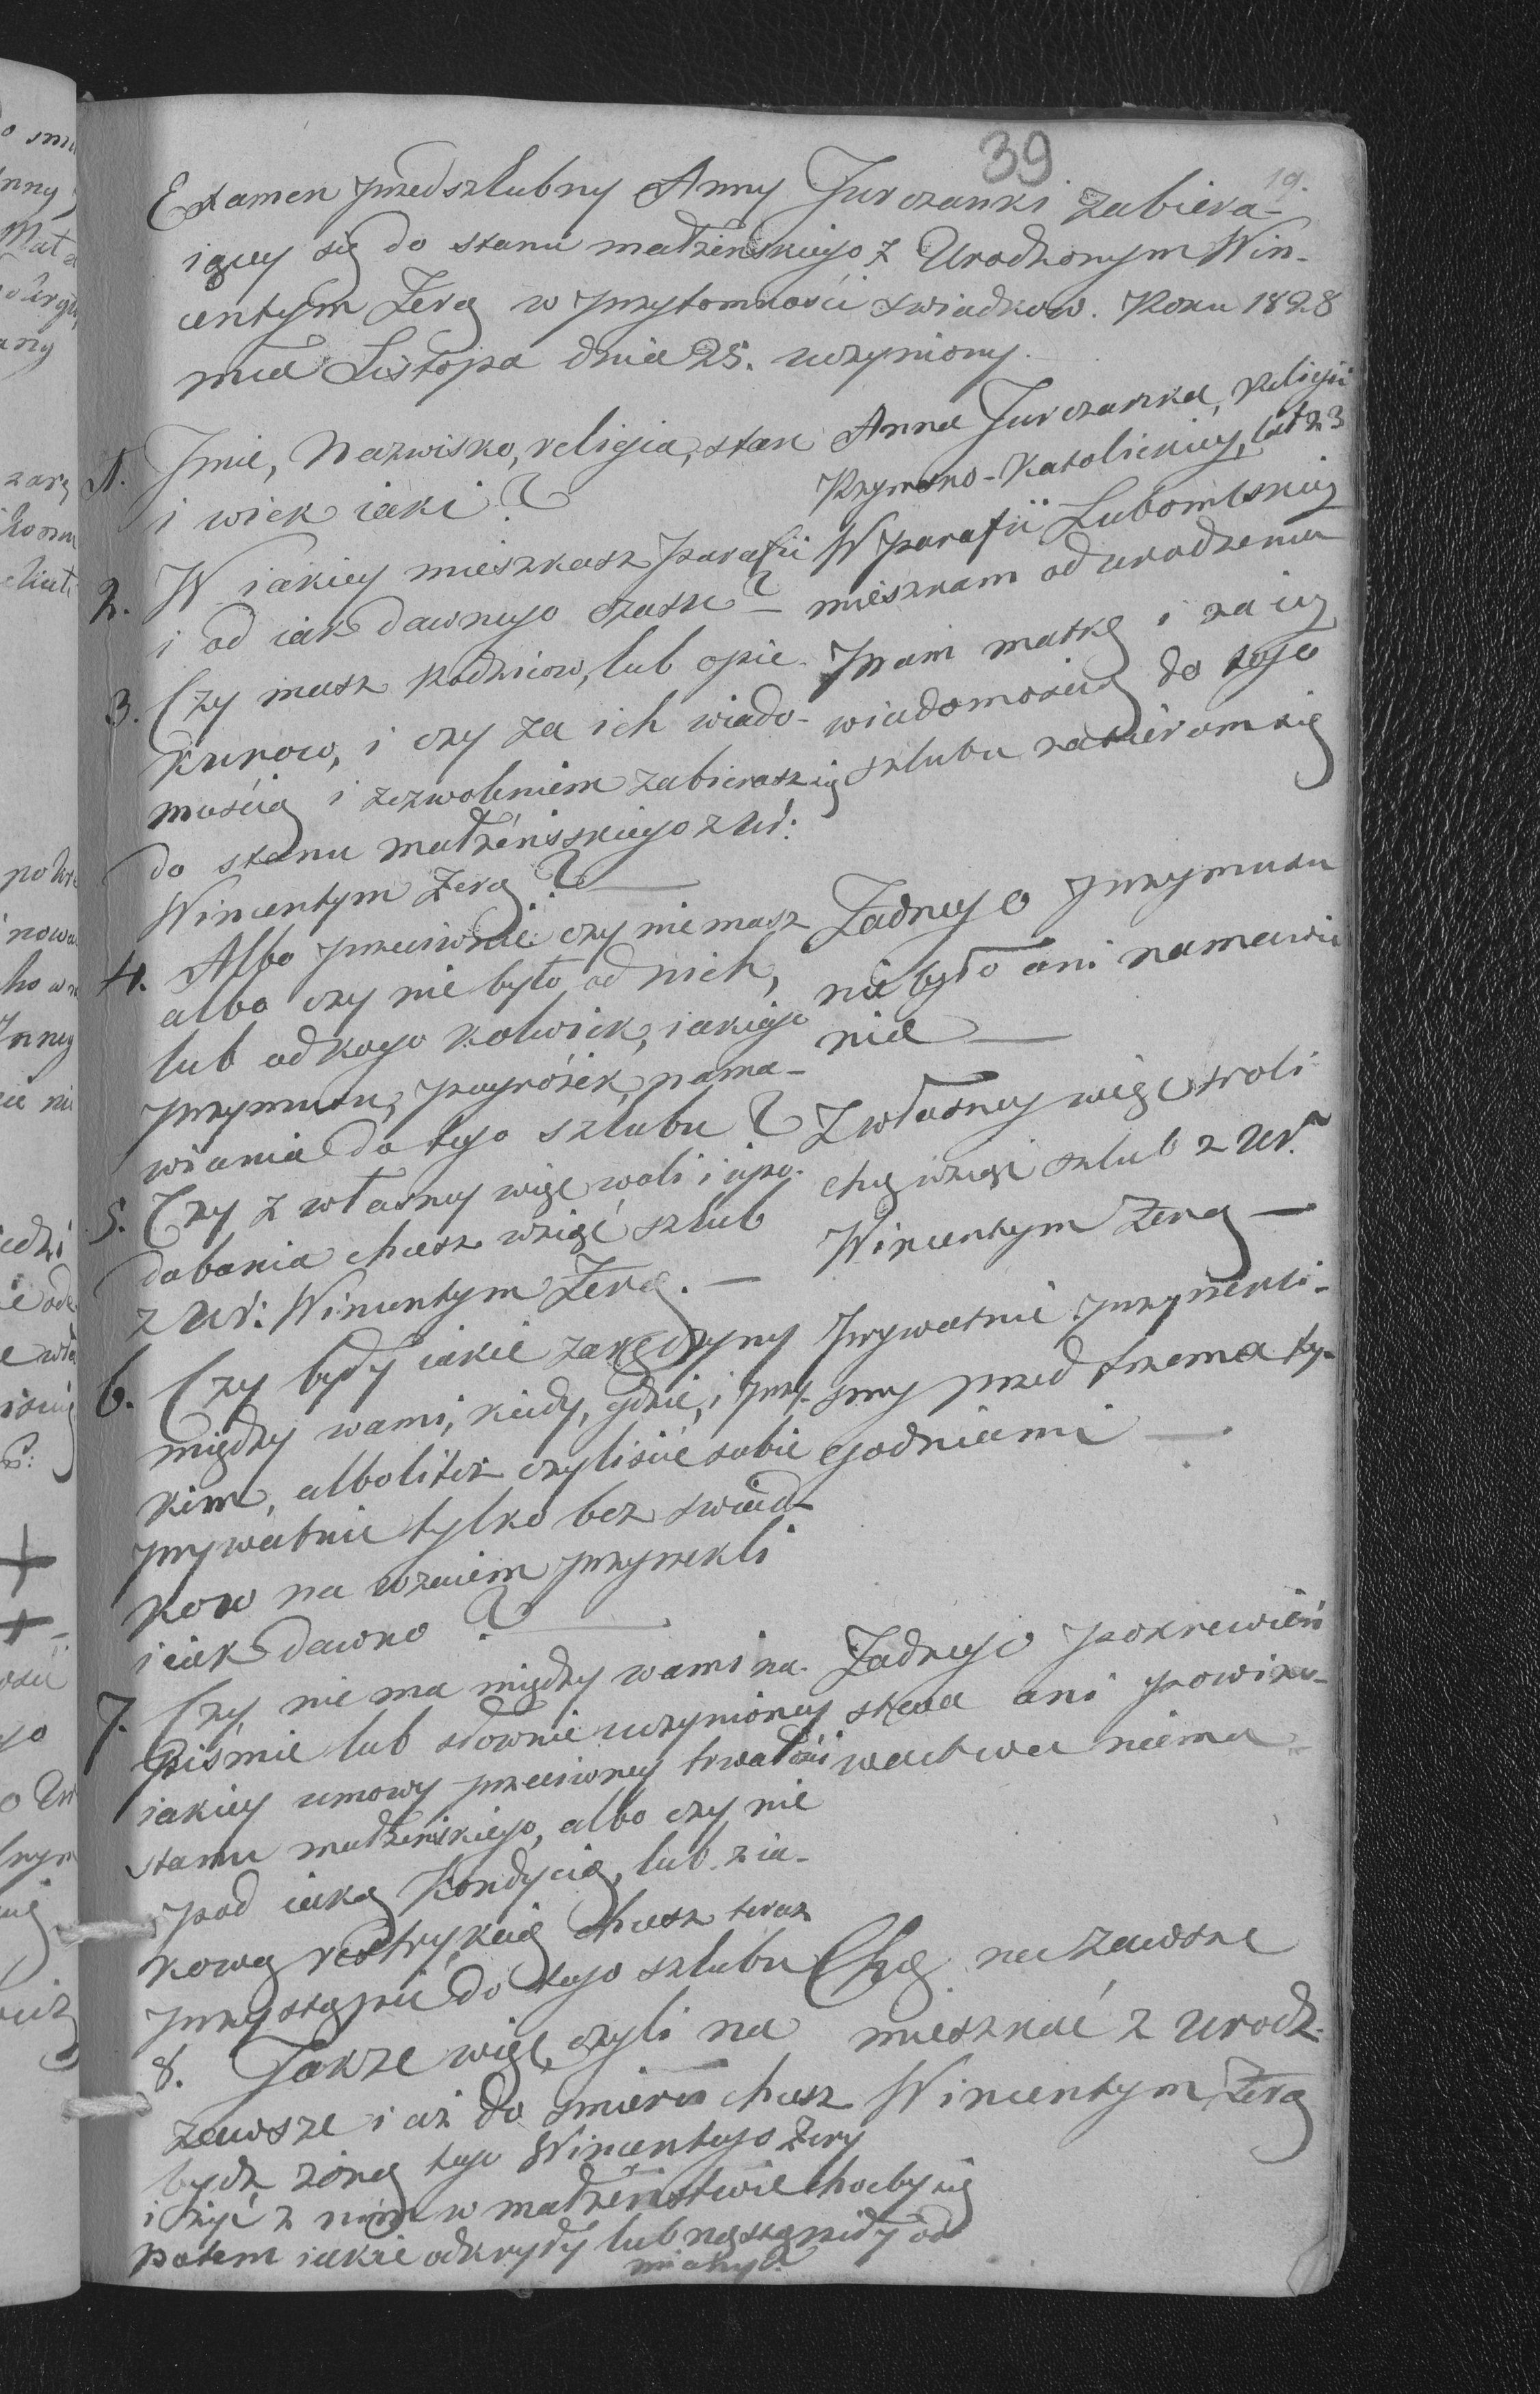 39
19.
Examen przedszlubny Anny Jurczanki zabiera-
iącey się do stanu małżenskiego z Urodzonym Win-
centym Żerą w przytomności swiadkow. Roku 1828
mca Listopa dnia 25. uczyniony.
1. Jmie, Nazwisko, religia, stan
i wiek iaki?
Anna Jurczanka, Religii
Rzymsko-Katolickiey, lat 23
2. W iakiey mieszkasz parafii
i od iak dawnego czasu?
W parafii Lubomlskiey
mieszkam od urodzenia
3. Czy masz Rodzicow, lub opie-
kunow, i czy za ich wiado-
mością i zezwoleniem zabierasz się
do stanu małżeńskiego z Ur:
Wincentym Żerą?
Mam matkę i za iey
wiadomością do tego
szlubu zabieram się
4. Albo przeciwnie czy nie masz
albo czy nie było od nich,
lub od kogo kolwiek, iakiego
przymusu, pogrożek, nama-
wiania do tego szlubu?
Żadnego przymusu
nie było ani namawia
nia
5. Czy z własney więc woli i upo-
dobania chcesz wziąć szlub
z Ur: Wincentym Żerą.
Z własney więc woli
chcę wziąć szlub z Ur.
Wincentym Żerą
6. Czy były iakie zaręczyny
między wami, kiedy, gdzie, i przy
kim, albo liteż czyliscie sobie
prywatnie tylko bez swiad-
kow na wzaiem przyrzekli
i iak dawno?
Prywatnie przyrzekli-
smy przed trzema ty-
godniami
7. Czy nie ma między wami na
piśmie lub słownie uczynioney
iakiey umowy przeciwney trwałości
stanu małżeńskiego, albo czy nie
pod iaką Kondycią, lub z ia-
kową restrykcią chcesz teraz
przystąpić do tego szlubu
Żadnego pokrewień
stwa ani powino-
wactwa niema
8. Jakże więc, czyli na
zawsze i aż do śmierci chcesz
bydź żoną tego Wincentego Żery
i żyć z nim w małżeństwie choćby się
potem iakie odkryły lub nastąpiły od
miany?
Chcę na zawsze
mieszkać z Urodz.
Wincentym Żerą